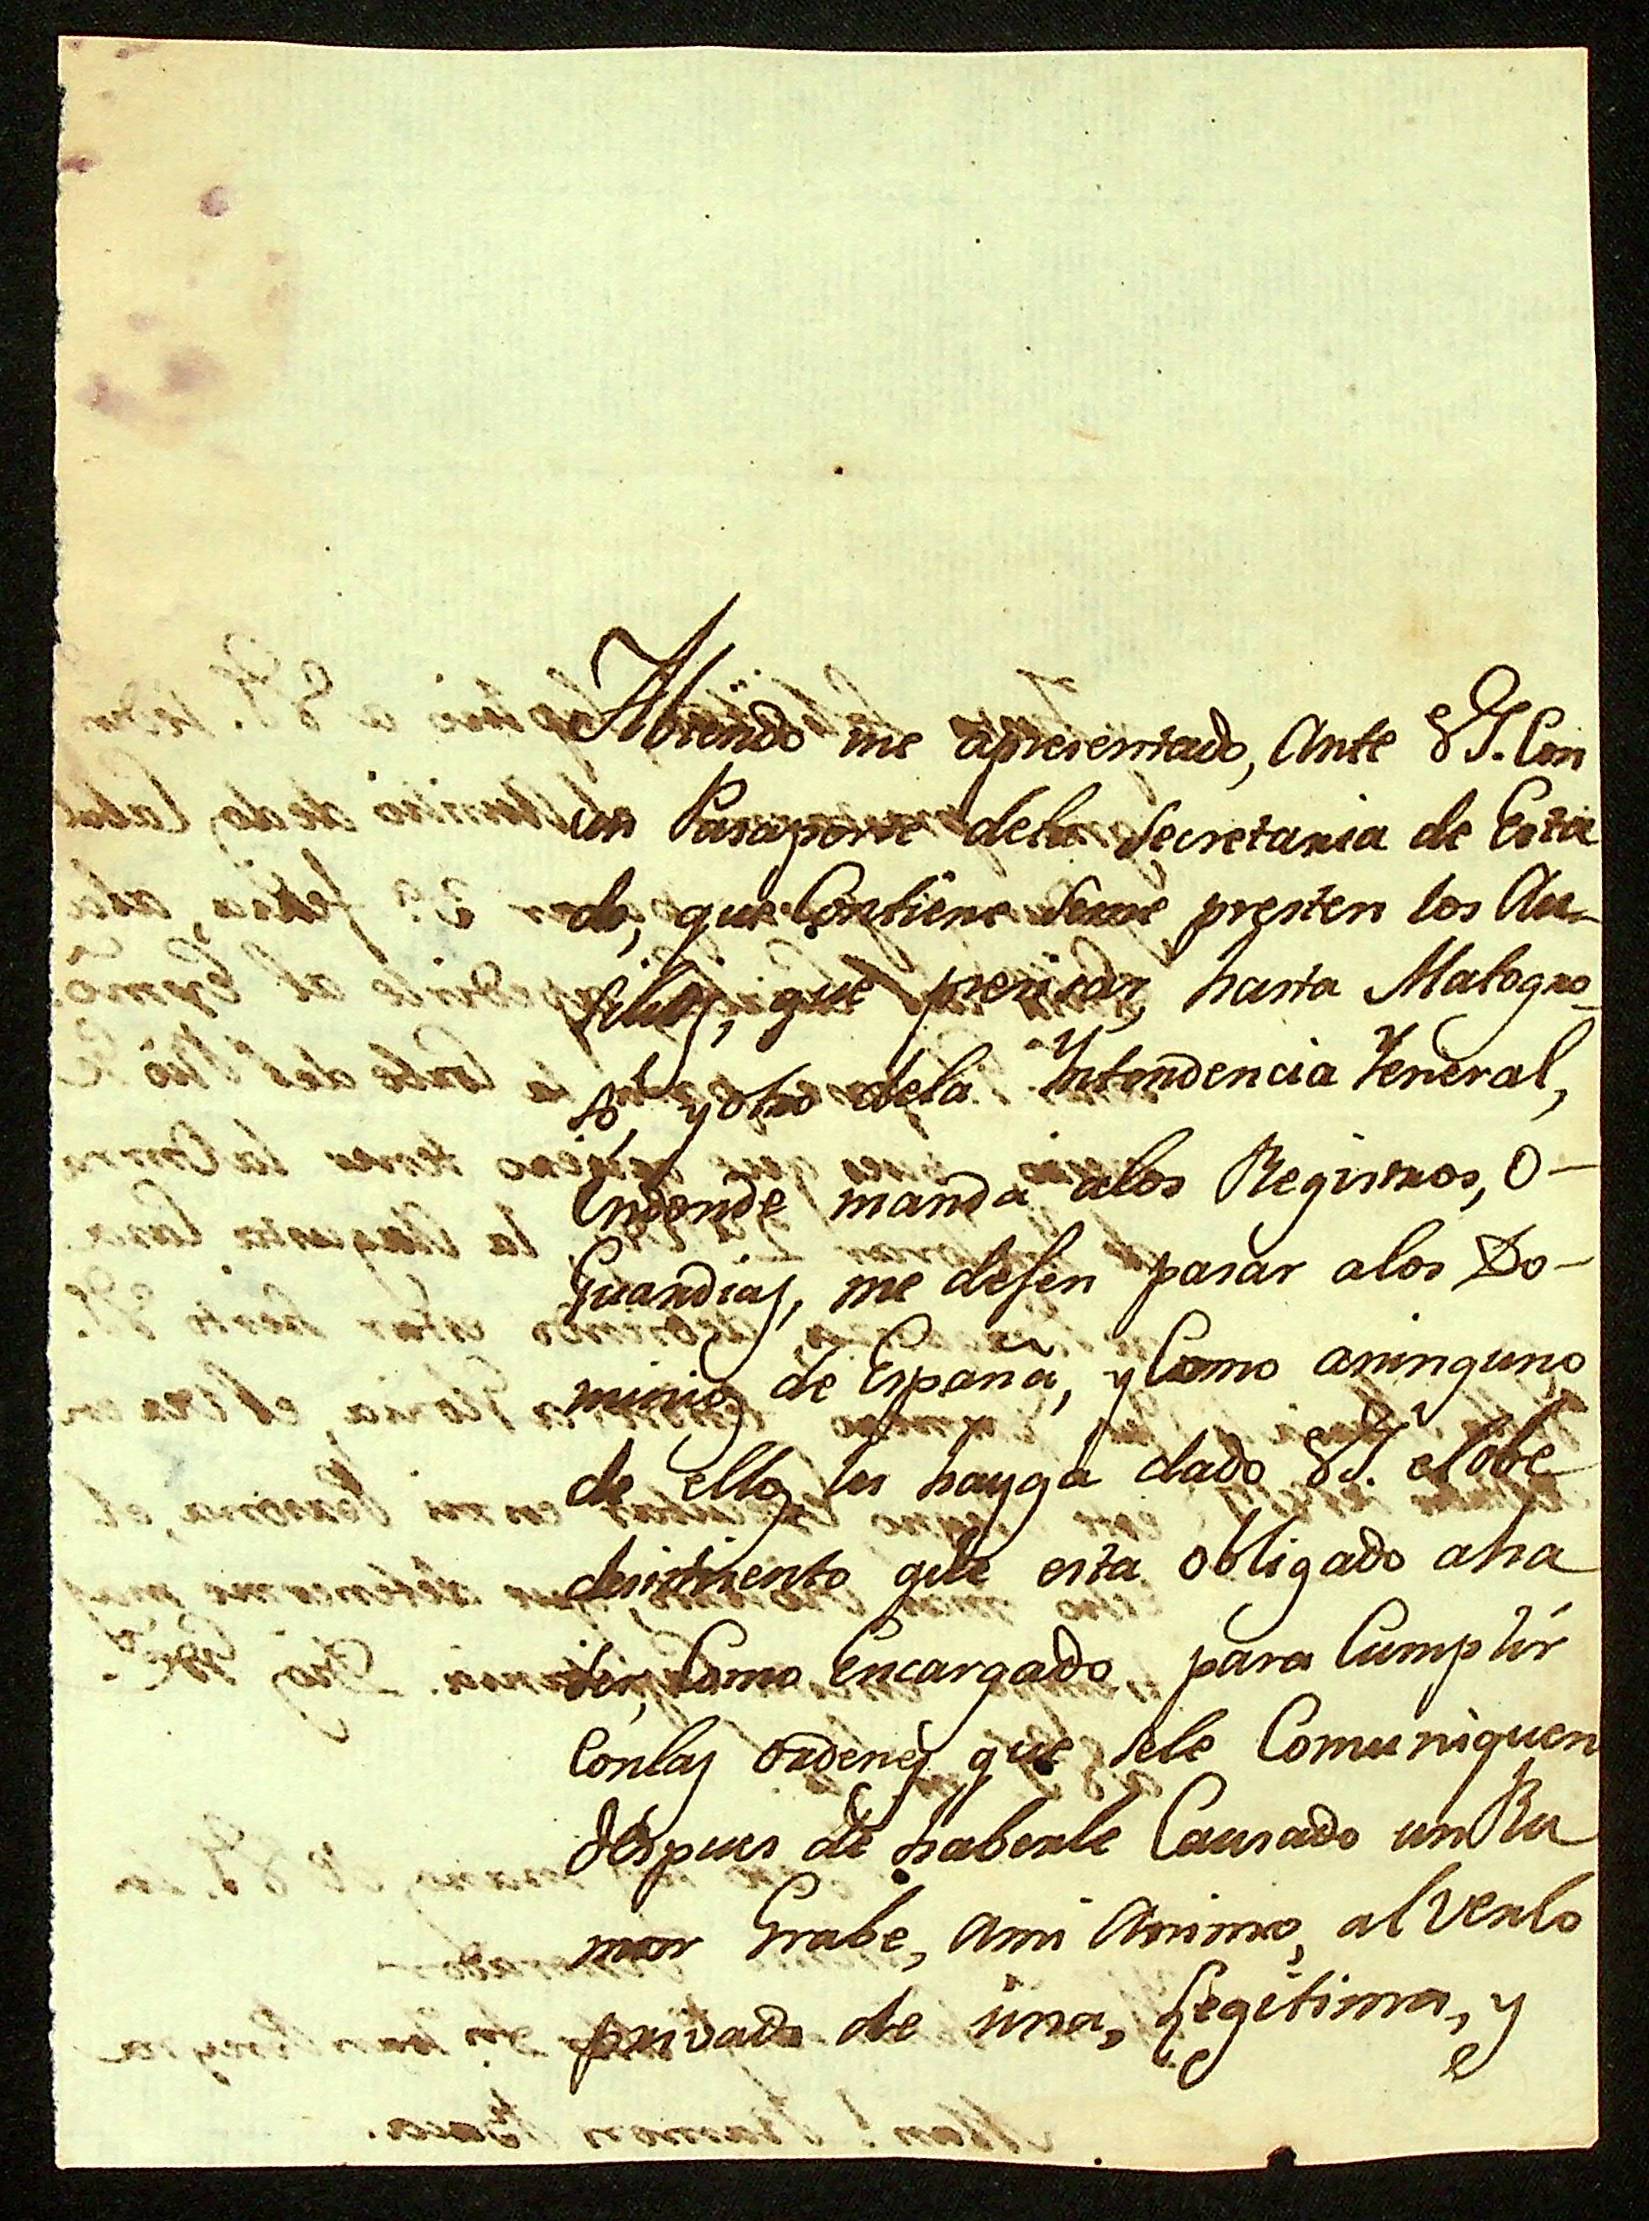 Abiendo me apresentado, Ante VS. Con
un Pasaporte dela Secretaria de Esta
do, que Contiene seme presten los Au-
silios, que presisar, hasta Matogro-
so, y otro dela Yntendencia Yeneral,
Endonde manda alos Registros, O-
Guardias, me defen pasar alos Do-
minios de España, y Como aninguno
de ellos les hayga dado VS. el obe
desimiento que esta obligado aha
ser, Como Encargado para Cumplir
Conlas ordenes que sele Comuniquen
despues de haberle Causado un Ru
mor Grabe, Ami Animo, al Verlo
privado de una, Legitima, y